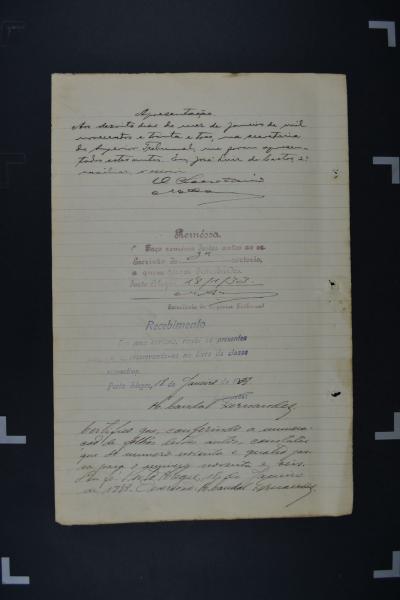 Apresentação.
Aos dezoito dias do mez de Janeiro de mil
novecentos e trinta e tres, na secretaria
do Superior Tribunal, me foram apresen-
tados estes autos. Eu, José Luiz de Castro, 2º
auxiliar, o escrevi.
O Secretario
Remessa
Faço remessa destes autos ao sr.
Escrivão do 3º cartorio,
a quem foram distribuidos.
Porto Alegre, 18/1/933
Secretario do Superior Tribunal
Recebimento
Em meu cartorio, recebi os presentes
no livro da classe
respectiva.
Porto Alegre, 18 de Janeiro de 1933
Fernandes
Certifico que, conferindo a numera-
ção de folhas destes autos, constatei
que do numero noventa e quatro pas-
sa para o numero noventa e seis.
Dou fé. Porto Alegre, 18 de Janeiro
de 1933. O escrivão Fernandes